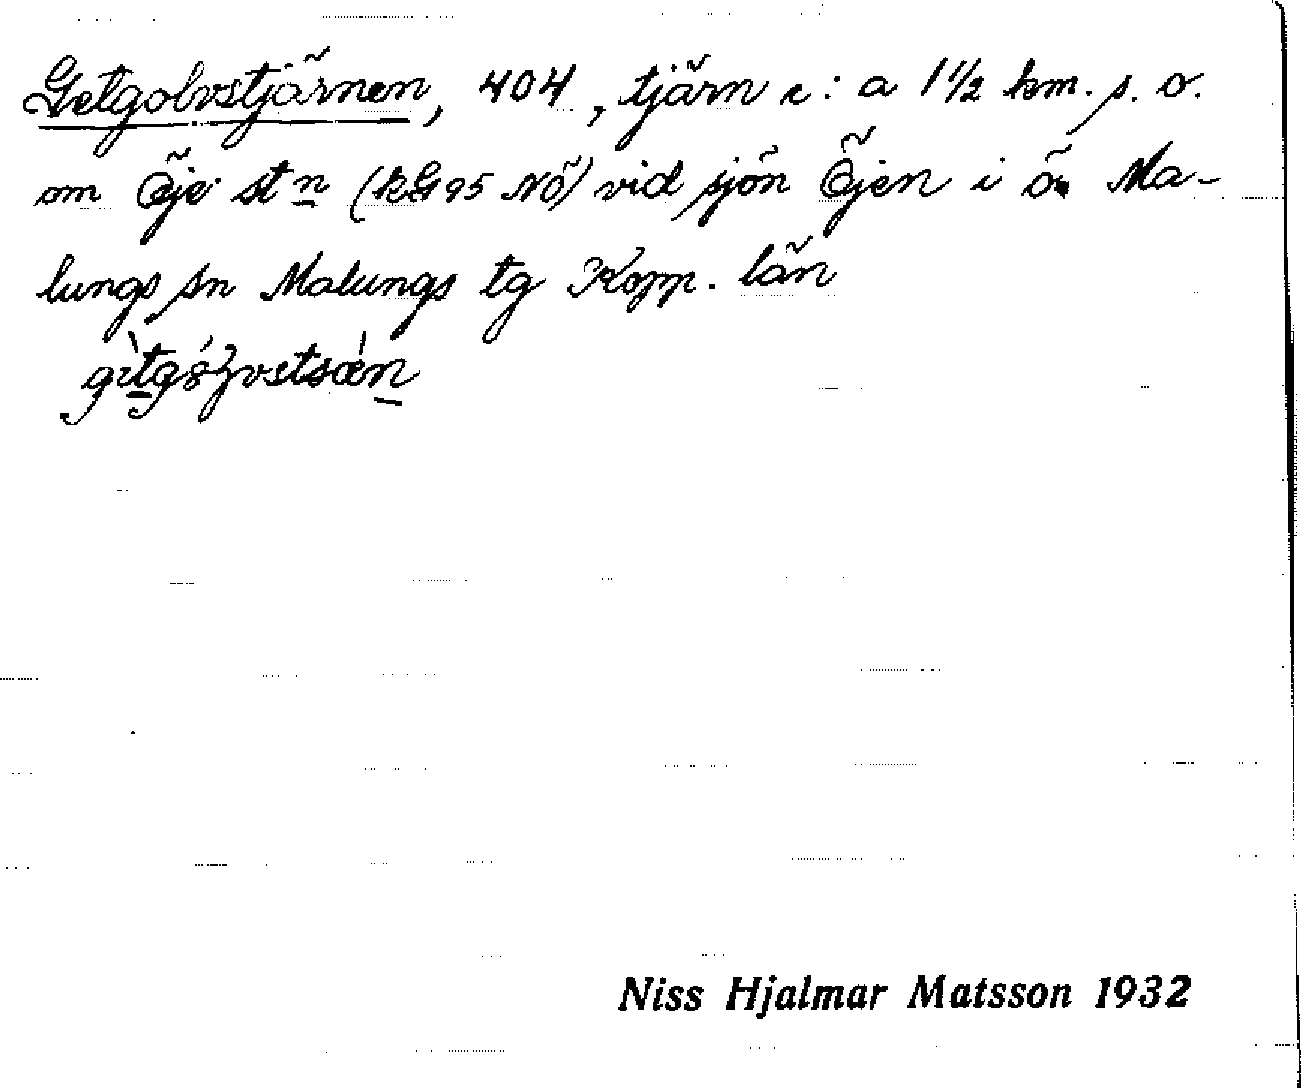 Getgolvstjärnen, 404, tjärn c:a 1 1/2 km. s. o.
om Öje stn (kG95 NÖ) vid sjön Öjen i ö. Ma-
lungs sn Malungs tg Kopp. län
Niss Hjalmar Matsson 1932